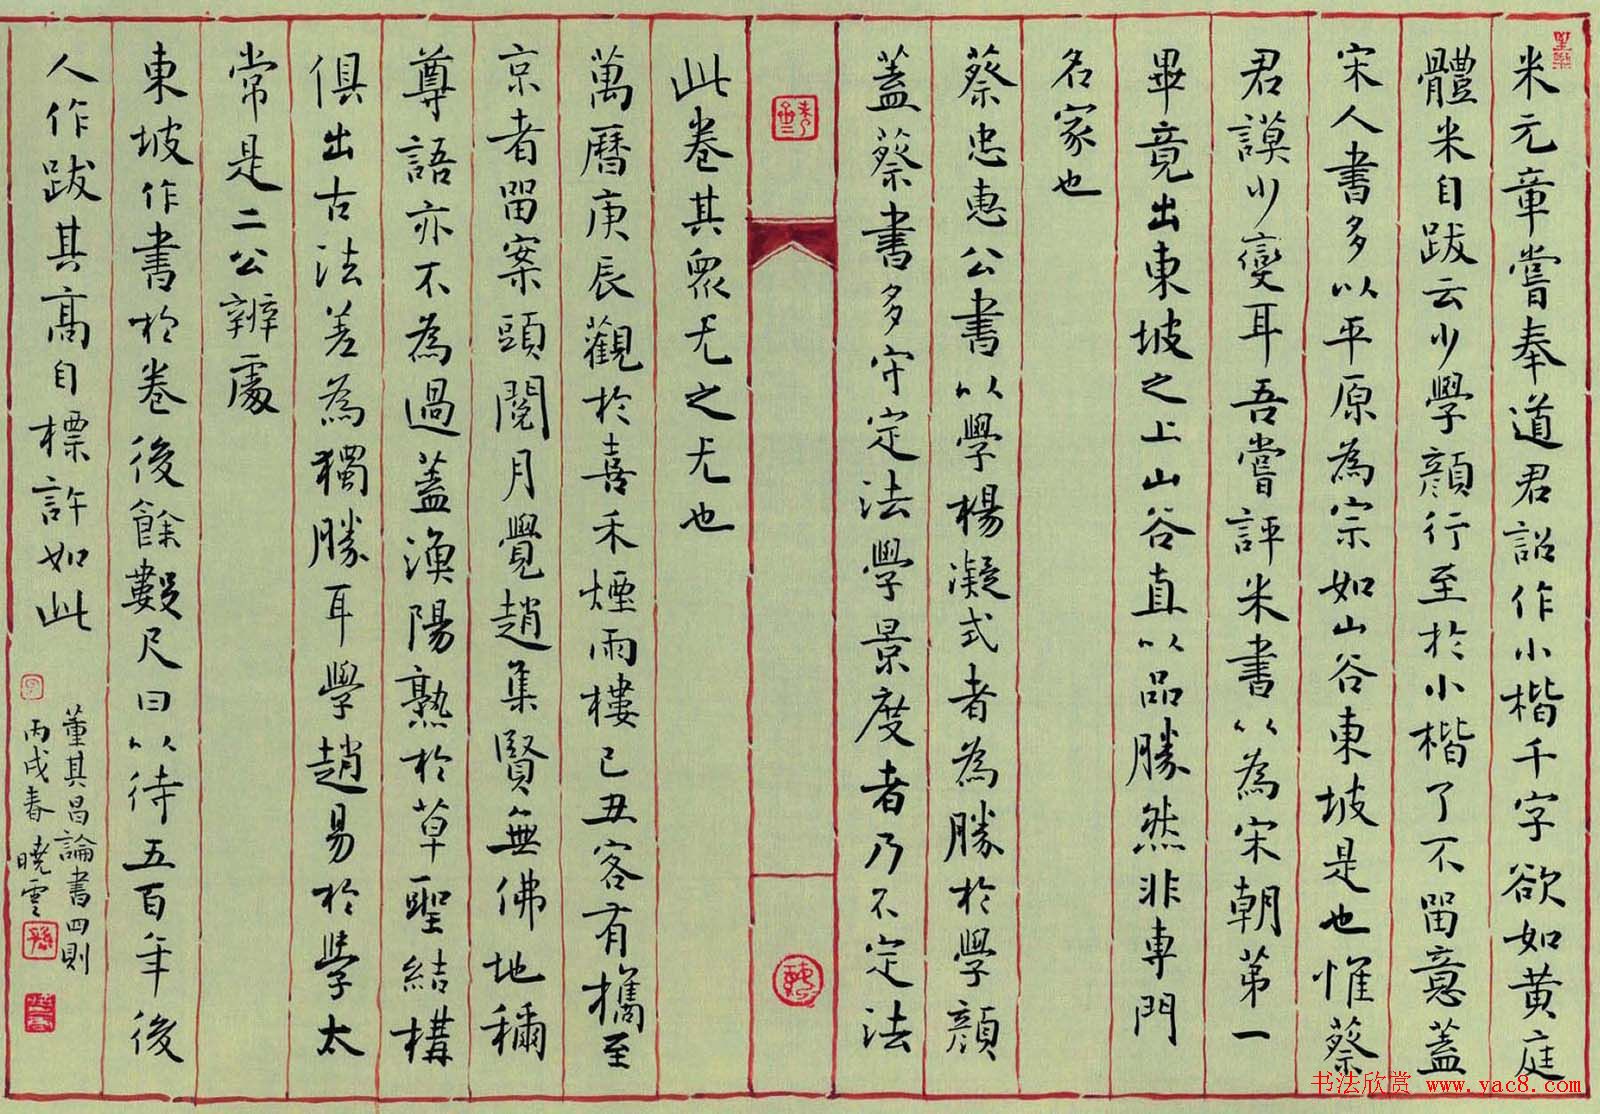 米元章嘗奉道君詔作小楷千字欲如黃庭
體米自跋云少學顏行至於小楷了不留意蓋
宋人書多以平原為宗如山谷東坡是也惟蔡
君謨少變耳吾嘗評米書以為宋朝第一
畢竟出東坡之上山谷直以品勝然非專門
名家也
蔡忠惠公書以學楊凝式者為勝於學顏
蓋蔡書多守定法學景度者乃不定法
此卷其眾尤之尤也
萬曆庚辰觀於喜禾煙雨樓己丑客有攜至
京者留案頭閱月覺趙集賢無佛地稱
尊語亦不為過蓋漁陽熟於草聖結構
俱出古法差為獨勝耳學趙易於學太
常是二公辨處
東坡作書於卷後餘數尺曰以待五百年後
人作跋其高自標許如此
董其昌論書四則
丙戌春曉雲
书法欣赏 www.yac8.com